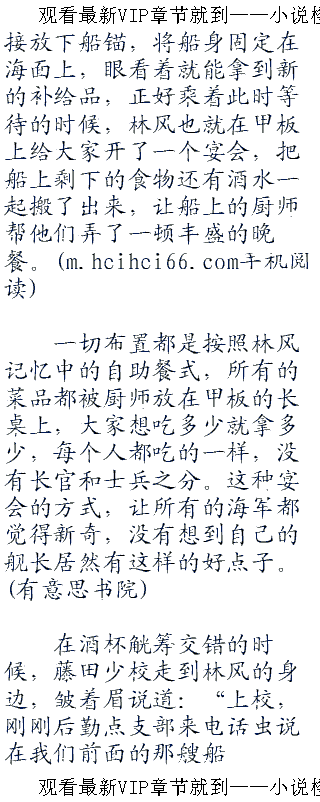 观看最新VIP章节就到——小说检
接放下船锚，将船身固定在
海面上，眼看着就能拿到新
的补给品，正好乘着此时等
待的时候，林风也就在甲板
上给大家开了一个宴会，把
船上剩下的食物还有酒水一
起搬了出来，让船上的厨师
帮他们弄了一顿丰盛的晚
餐。(m.hcihci66.com手机阅
读)
一切布置都是按照林风
记忆中的自助餐式，所有的
菜品都被厨师放在甲板的长
桌上，大家想吃多少就拿多
少，每个人都吃的一样，没
有长官和士兵之分。这种宴
会的方式，让所有的海军都
觉得新奇，没有想到自己的
舰长居然有这样的好点子。
(有意思书院)
在酒杯觥筹交错的时
候，藤田少校走到林风的身
边，皱着眉说道：“上校，
刚刚后勤点支部来电话虫说
在我们前面的那艘船
观看最新VIP章节就到——小说检